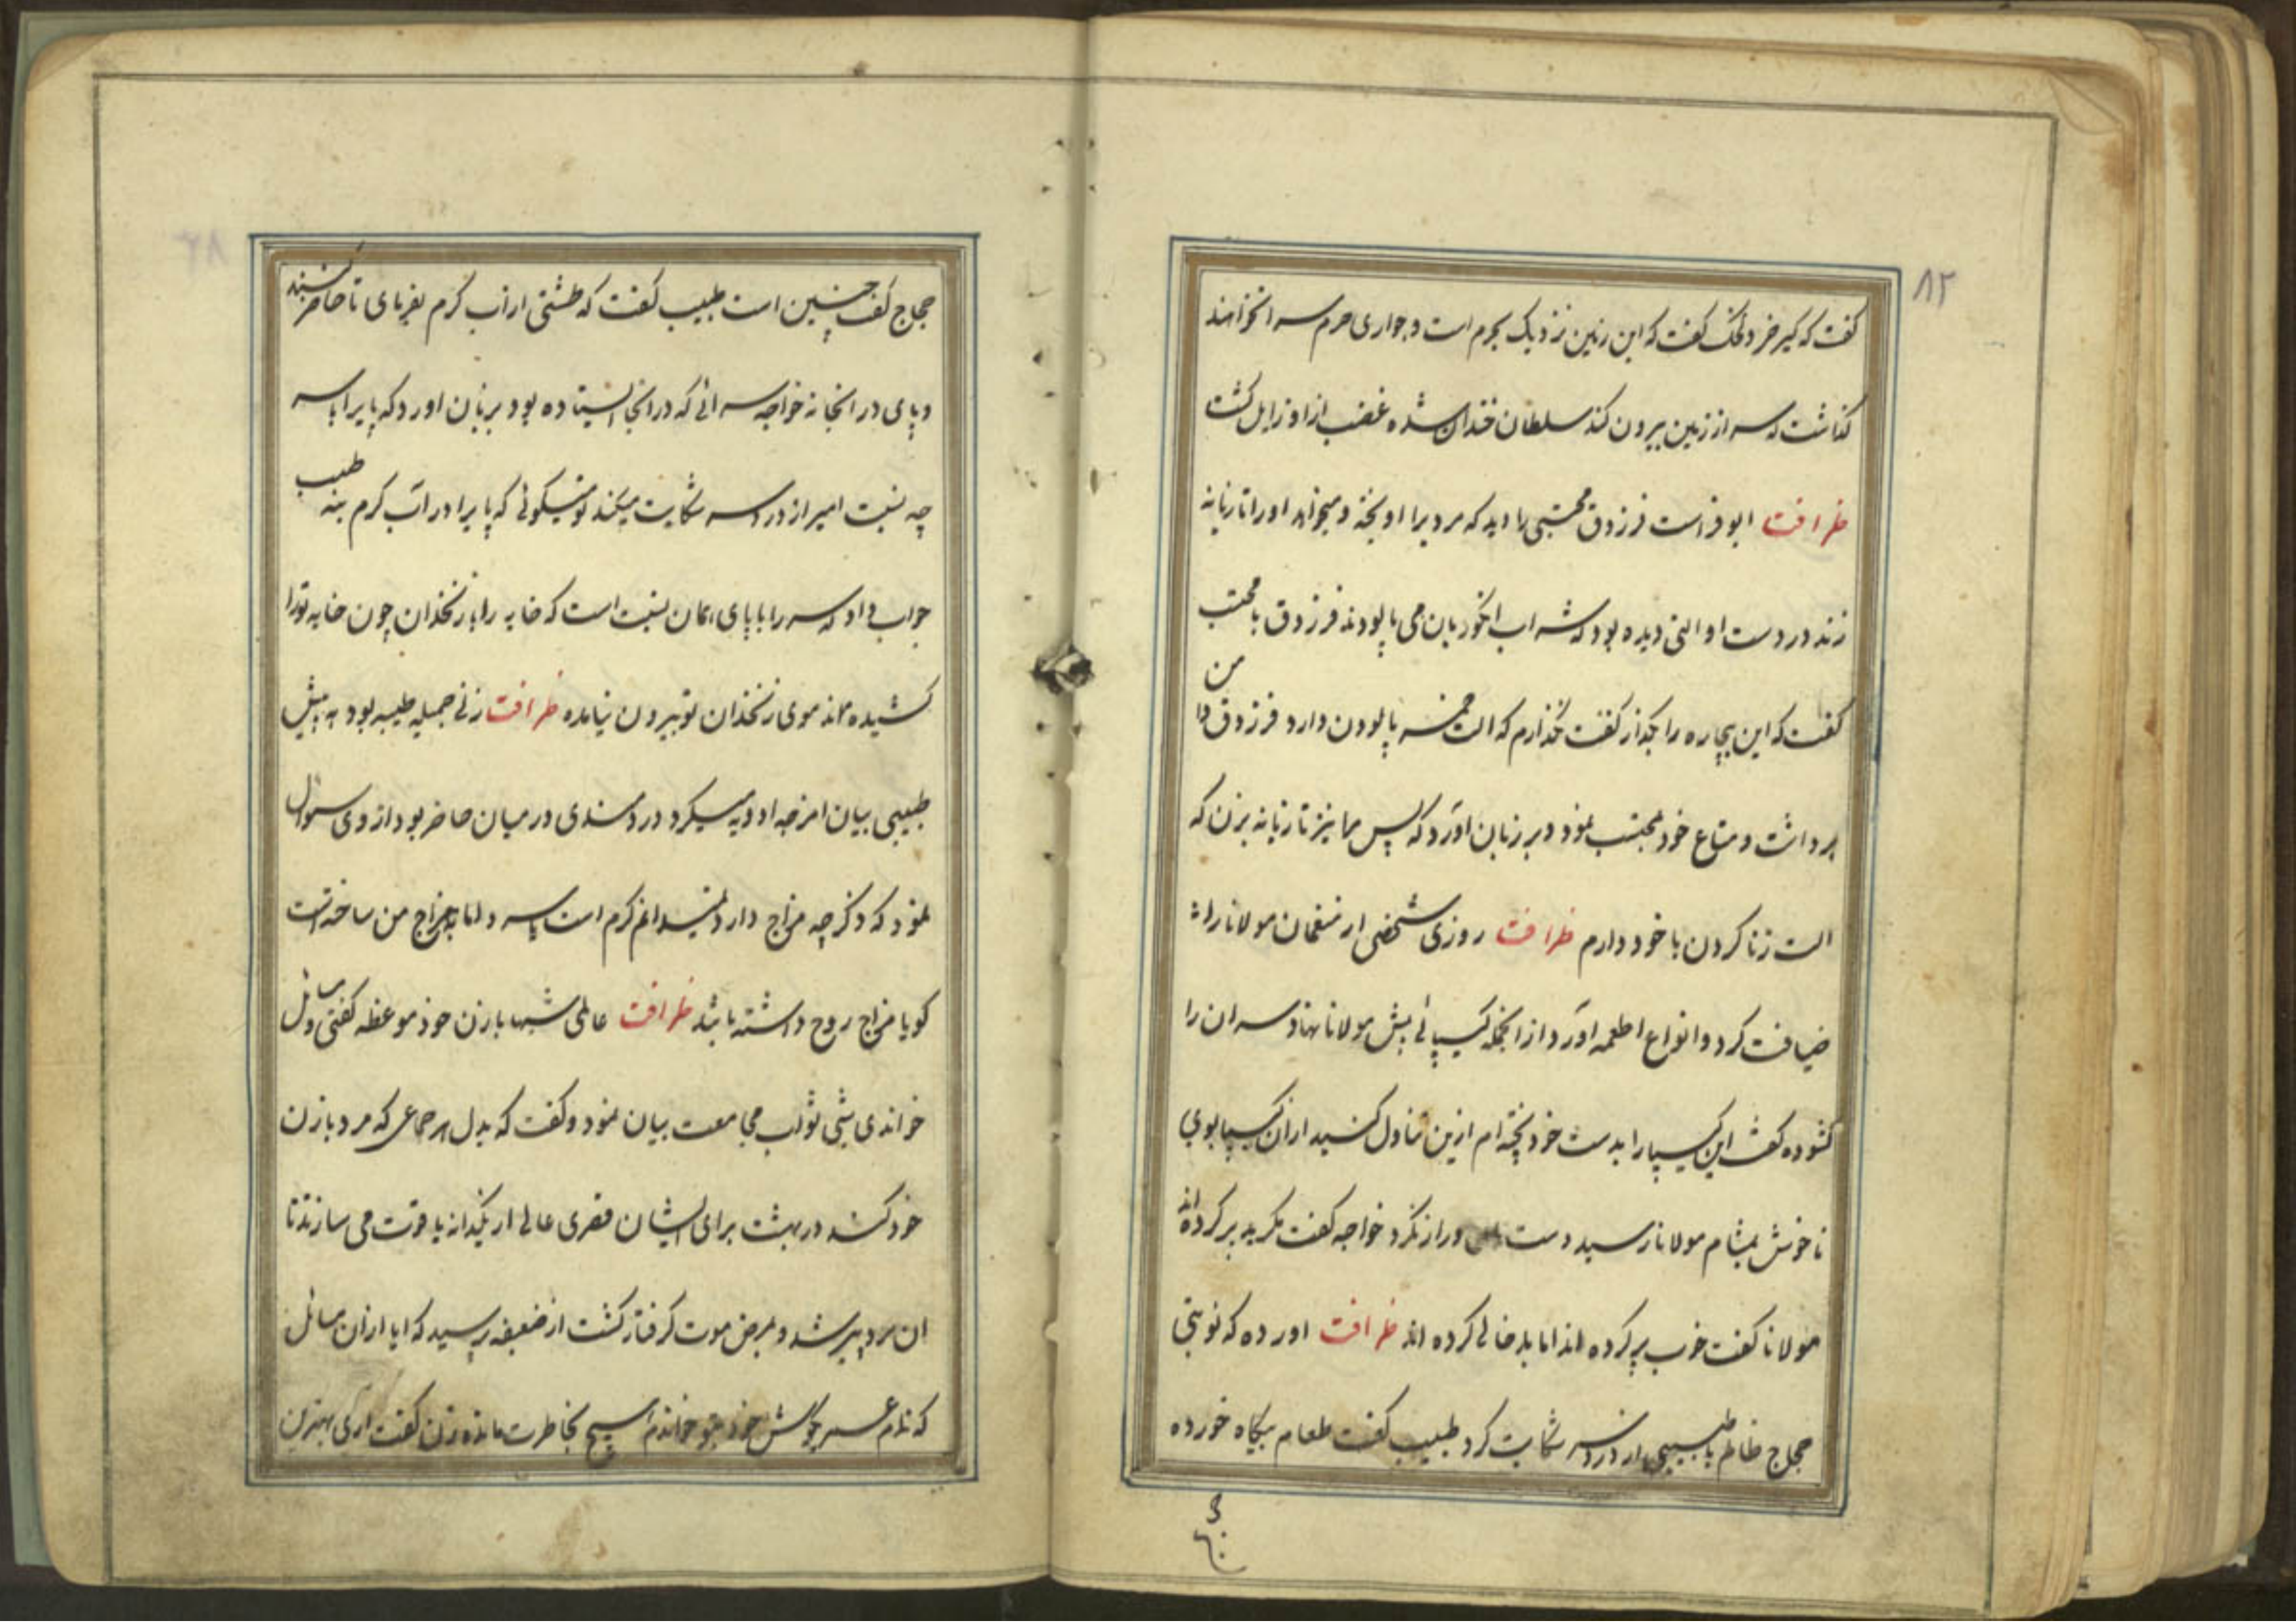 ۸۲
گفت که کیر خر دلخک گفت که این زمین نزدیک بحرم است و جواری حرم سرا نخواهند
گذاشت که سر از زمین بیرون کند سلطان خندان شده غضب از او زایل گشت
ظرافت ابو فراست فرزدق محتسبی را دید که مردیرا اویخته و میخواهد اورا تازیانه
زند در دست او التی دیده بود که شراب انگور بان می پالودند فرزدق با محتسب
گفت که این بیچاره را بگذار گفت نگذارم که الت خمر پالودن دارد فرزدق دامن
برداشت و متاع خود بمحتسب نمود و بر زبان اورد که پس مرا نیز تازیانه بزن که
الت زنا کردن با خود دارم ظرافت روزی شخصی از منعمان مولانا را
ضیافت کرد و انواع اطعمه اورد از انجمله کیپائی پیش مولانا نهاد سر ان را
گشوده گفت این کیپا را بدست خود پخته ام ازین تناول کنید از ان کیپا بوی
ناخوش بمشام مولانا رسید دست دراز نکرد خواجه گفت مگر بد پر کرده اند
مولانا گفت خوب پر کرده اند اما بد خالی کرده اند ظرافت اورده که نوبتی
حجاج ظالم با طبیبی از درد سر شکایت کرد طبیب گفت طعام بیگاه خورده
حجاج گفت چنین است طبیب گفت که طشتی از اب گرم بفرمای تا حاضر کنند
و پای در انجا نه خواجه سرائی که در انجا ایستاده بود بر زبان اورد که پای را با سر
چه نسبت امیر از درد سر شکایت میکند تو میگوئی که پای را در اب گرم بنه طبیب
جواب داد که سر را با پای همان نسبت است که خایه را با زنخدان چون خایه تورا
کشیده اند موی زنخدان تو بیرون نیامده ظرافت زنی جمیله طبیبه بود به پیش
طبیبی بیان امزجه ادویه میکرد دردمندی در میان حاضر بود از وی سوال
نمود که ذکر چه مزاج دارد نمیدانم گرم است یا سرد اما با مزاج من ساخته است
گویا مزاج روح داشته باشد ظرافت عالمی شبها با زن خود موعظه گفتی و مسائل
خواندی شبی ثواب مجامعت بیان نمود و گفت که بدل هر جماعی که مرد با زن
خود کند در بهشت برای ایشان قصری عالی از یکدانه یاقوت می سازند تا
ان مرد پیر شد و بمرض موت گرفتار گشت از ضعیفه پرسید که ایا از ان مسائل
که تمام عمر بگوش خود بتو خواندم هیچ بخاطرت مانده زن گفت اری بهترین